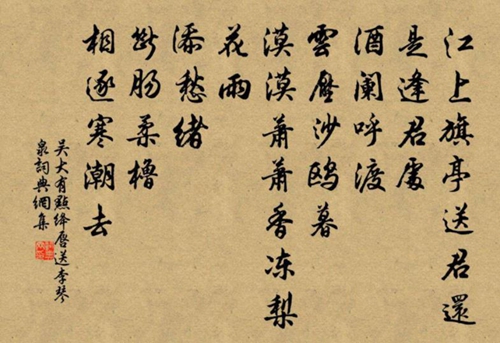 江上旗亭送君還
是逢君處
酒闌呼渡
雲壓沙鸥暮
漠漠萧萧香冻梨
花雨
添愁緒
斷肠柔櫓
相逐寒潮去
吴大有點绛唇送李琴
泉詞典網集